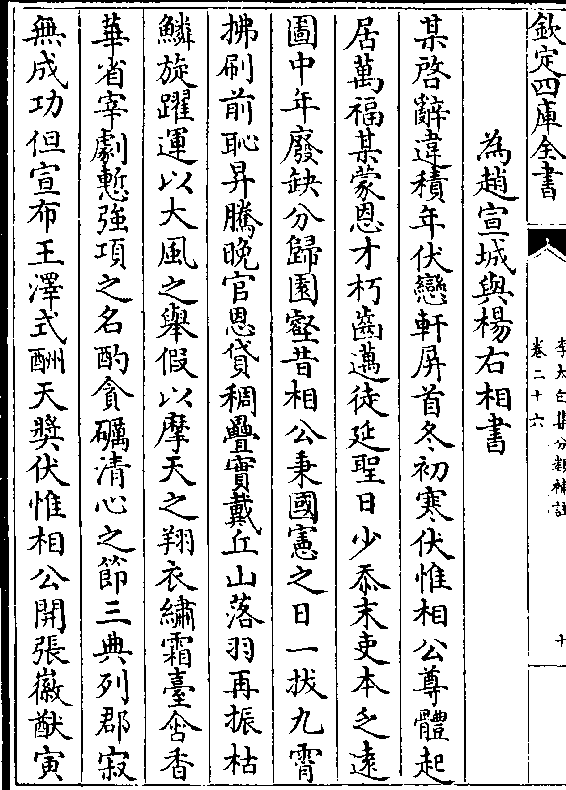 欽定四庫全書
李太白集分類補註
卷二十六
十
為趙宣城與楊右相書
某啓辭違積年伏戀軒屏首冬初寒伏惟相公尊體起
居萬福某蒙恩才朽齒邁徒延聖日少忝末吏本乏遠
圖中年廢缺分歸園壑昔相公秉國憲之日一拔九霄
拂刷前恥昇騰晚官恩貸稠疊實戴丘山落羽再振枯
鱗旋躍運以大風之舉假以摩天之翔衣繡霜臺含香
華省宰劇慙強項之名酌貪礪清心之節三典列郡寂
無成功但宣布王澤式酬天奬伏惟相公開張徽猷寅